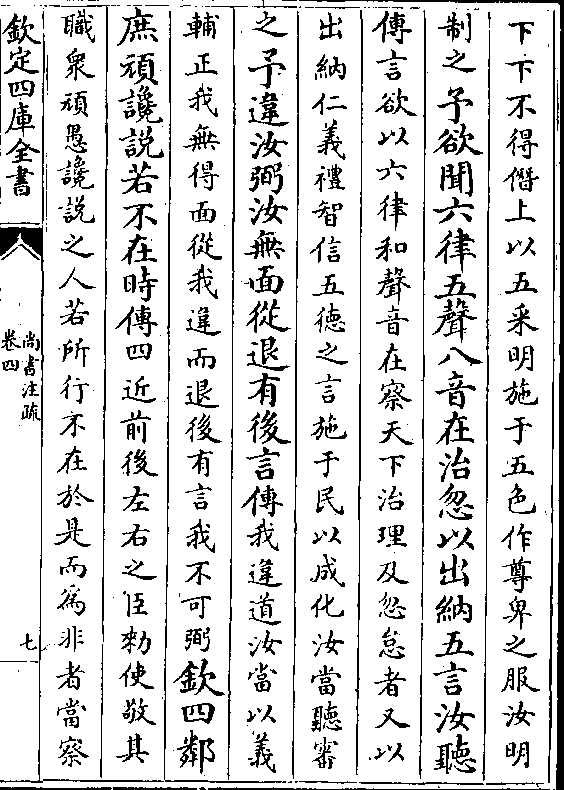 下下不得僭上以五采明施于五色作尊卑之服汝明
制之予欲聞六律五聲八音在治忽以出納五言汝聽
傳言欲以六律和聲音在察天下治理及忽怠者又以
出納仁義禮智信五徳之言施于民以成化汝當聽審
之予違汝弼汝無面從退有後言傳我違道汝當以義
輔正我無得面從我違而退後有言我不可弼欽四鄰
庶頑讒説若不在時傳四近前後左右之臣勑使敬其
職衆頑愚讒説之人若所行不在於是而為非者當察
欽定四庫全書
尚書注疏
卷四
七